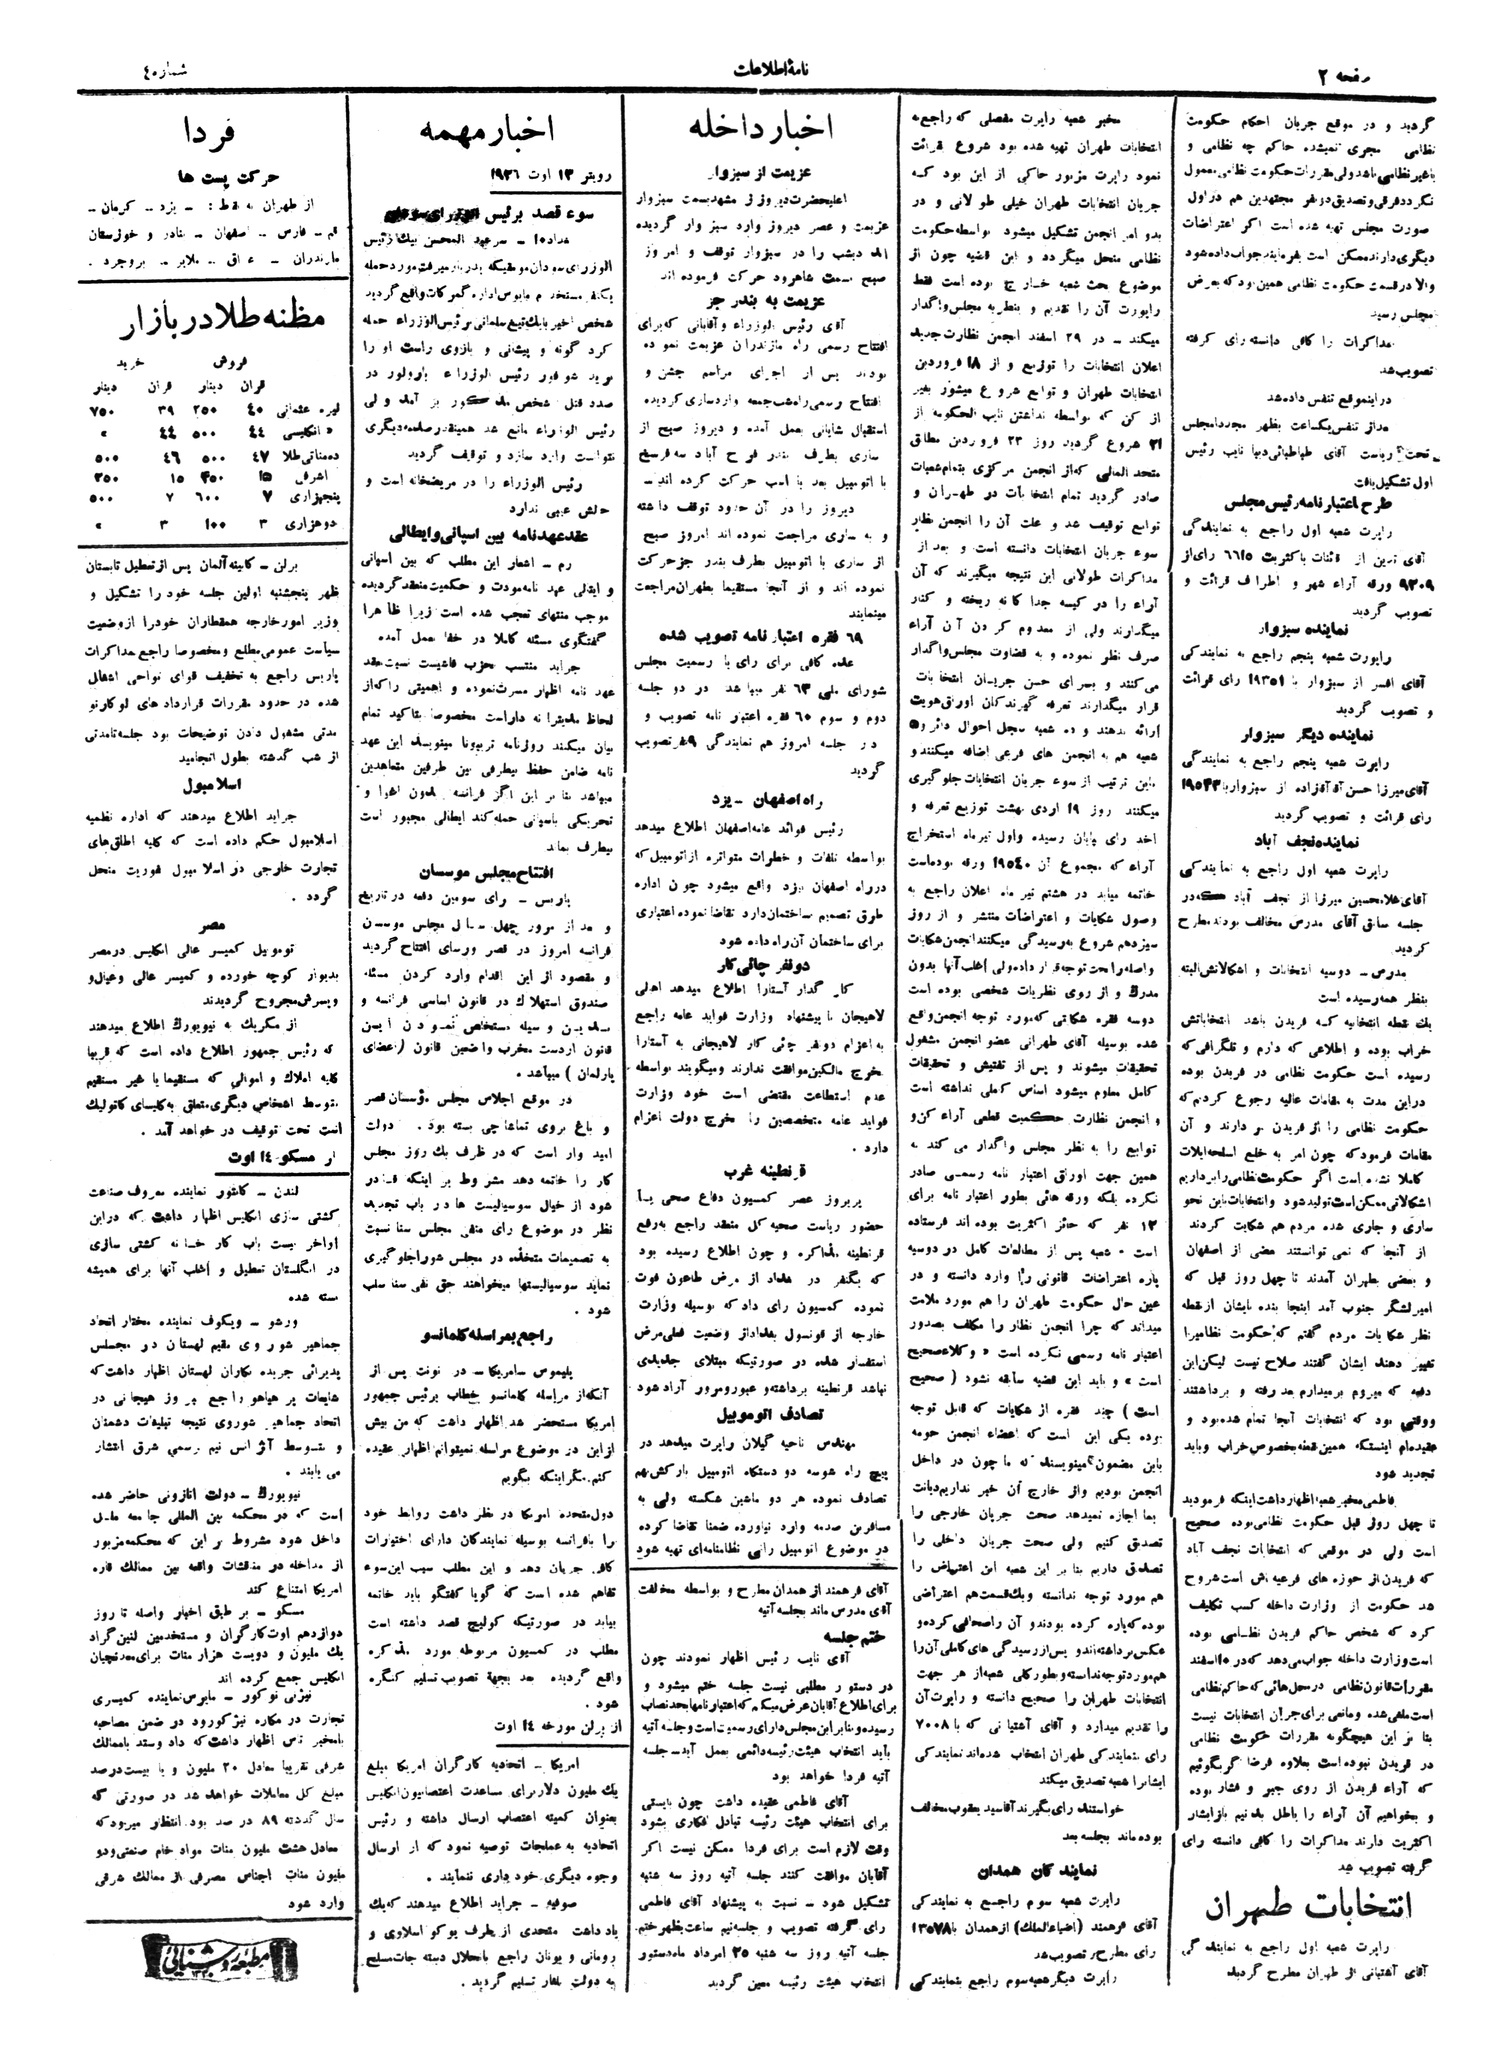 صفحه ۲
نامهٔ اطلاعات
شماره ٤
گردید و در موقع جریان احکام حکومت
نظامی مجری نمیشده حاکم چه نظامی و
یا غیر نظامی باشد ولی مقررات حکومت نظامی معمول
نگردد فرقی و تصدیق دو نفر مجتهدین هم در اول
صورت مجلس تهیه شده است اگر اعتراضات
دیگری دارند ممکن است بفرمایند جواب داده شود
والا در قسمت حکومت نظامی همین بود که بعرض
مجلس رسید
مذاکرات را کافی دانسته رای گرفته
تصویب شد
در اینموقع تنفس داده شد
بعد از تنفس یکساعت بظهر مجددا مجلس
تحت ریاست آقای طباطبائی دیبا نایب رئیس
اول تشکیل یافت
طرح اعتبارنامه رئیس مجلس
راپرت شعبه اول راجع به نمایندگی
آقای تدین از قائنات باکثریت ٦٦١٥ رای از
۹۳۰۹ ورقه آراء شهر و اطراف قرائت و
تصویب گردید
نماینده سبزوار
راپورت شعبه پنجم راجع به نمایندگی
آقای افسر از سبزوار با ۱۹۳٥۱ رای قرائت
و تصویب گردید
نماینده دیگر سبزوار
راپرت شعبه پنجم راجع به نمایندگی
آقای میرزا حسن آقا آقازاده از سبزوار با ۱۹٥٤۳
رای قرائت و تصویب گردید
نماینده نجف آباد
راپرت شعبه اول راجع به نمایندگی
آقای غلامحسین میرزا از نجف آباد که در
جلسه سابق آقای مدرس مخالف بودند مطرح
گردید
مدرس ـ دوسیه انتخابات و اشکالاتش البته
بنظر همه رسیده است
یك نقطه انتخابیه که فریدن باشد انتخاباتش
خراب بوده و اطلاعی که دارم و تلگرافی که
رسیده است حکومت نظامی در فریدن بوده
در این مدت به مقامات عالیه رجوع کردیم که
حکومت نظامی را از فریدن بر دارند و آن
مقامات فرمودند که چون امر به خلع اسلحه ایلات
کاملا نشده است اگر حکومت نظامی را برداریم
اشکالاتی ممکن است تولید شود و انتخابات باین نحو
ساری و جاری شده مردم هم شکایت کردند
از آنجا که نمی توانستند بعضی از اصفهان
و بعضی بطهران آمدند تا چهل روز قبل که
امیر لشگر جنوب آمد اینجا بنده بایشان از نقطه
نظر شکایات مردم گفتم که حکومت نظامیرا
تغییر دهند ایشان گفتند صلاح نیست لیکن این
دفعه که میروم برمیدارم بعد رفته و برداشتند
ووقتی بود که انتخابات آنجا تمام شده بود و
عقیده ام اینستکه همین نقطه بخصوص خراب و باید
تجدید شود
فاطمی مخبر شعبه اظهار داشت اینکه فرمودید
تا چهل روز قبل حکومت نظامی بوده صحیح
است ولی در موقعی که انتخابات نجف آباد
که فریدن از حوزه های فرعیه اش است شروع
شد حکومت از وزارت داخله کسب تکلیف
کرد که شخص حاکم فریدن نظامی بوده
است وزارت داخله جواب می دهد که در ۱۰ اسفند
مقررات قانون نظامی در محل هائی که حاکم نظامی
است ملغی شده و مانعی برای جریان انتخابات نیست
بنا بر این هیچگونه مقررات حکومت نظامی
در فریدن نبوده است بعلاوه فرضا گر بگوئیم
که آراء فریدن از روی جبر و فشار بوده
و بخواهیم آن آراء را باطل بدانیم باز ایشان
اکثریت دارند مذاکرات را کافی دانسته رای
گرفته تصویب شد
انتخابات طهران
راپرت شعبه اول راجع به نمایندگی
آقای آشتیانی از طهران مطرح گردید
مخبر شعبه راپرت مفصلی که راجع به
انتخابات طهران تهیه شده بود شروع قرائت
نمود راپرت مزبور حاکی از این بود که
جریان انتخابات طهران خیلی طولانی و در
بدو امر انجمن تشکیل میشود بواسطه حکومت
نظامی منحل میگردد و این قضیه چون از
موضوع بحث شعبه خارج بوده است فقط
راپورت آن را تقدیم و بنظریه مجلس واگذار
میکند ـ در ۲۹ اسفند انجمن نظارت جدید
اعلان انتخابات را توزیع و از ۱۸ فروردین
انتخابات طهران و توابع شروع میشود بغیر
از کن که بواسطه نداشتن نایب الحکومه از
۲۱ شروع گردید روز ۲۳ فروردین مطابق
متحد المالی که از انجمن مرکزی بتمام شعبات
صادر گردید تمام انتخابات در طهران و
توابع توقیف شد و علت آن را انجمن نظار
سوء جریان انتخابات دانسته است و بعد از
مذاکرات طولانی این نتیجه میگیرند که آن
آراء را در کیسه جدا گانه ریخته و کنار
میگذارند ولی از معدوم کردن آن آراء
صرف نظر نموده و به قضاوت مجلس واگذار
می کنند و برای حسن جریان انتخابات
قرار میگذارند تعرفه گیرندگان اوراق هویت
ارائه بدهند و ده شعبه سجل احوال دائر و ٥
شعبه هم به انجمن های فرعی اضافه میکنند و
باین ترتیب از سوء جریان انتخابات جلوگیری
میکنند روز ۱۹ اردی بهشت توزیع تعرفه و
اخذ رای پایان رسیده و اول تیر ماه استخراج
آراء که مجموع آن ۱۹٥٤۰ ورقه بوده است
خاتمه میابد در هشتم تیر ماه اعلان راجع به
وصول شکایات و اعتراضات منتشر و از روز
سیزدهم شروع به رسیدگی میکنند انجمن شکایات
واصله را تحت توجه قرار داده ولی اغلب آنها بدون
مدرك و از روی نظریات شخصی بوده است
دوسه فقره شکایتی که مورد توجه انجمن واقع
شده بوسیله آقای طهرانی عضو انجمن مشغول
تحقیقات میشوند و پس از تفتیش و تحقیقات
کامل معلوم میشود اساس کاملی نداشته است
و انجمن نظارت حکمیت قطعی آراء کن و
توابع را به نظر مجلس واگذار می کند به
همین جهت اوراق اعتبار نامه رسمی صادر
نکرده بلکه ورقه هائی بطور اعتبار نامه برای
۱۲ نفر که حائز اکثریت بوده اند فرستاده
است ۰ شعبه پس از مطالعات کامل در دوسیه
پاره اعتراضات قانونی را وارد دانسته و در
عین حال حکومت طهران را هم مورد ملامت
میداند که چرا انجمن نظار را مکلف بصدور
اعتبار نامه رسمی نکرده است « وکلا صحیح
است » و باید این قضیه سابقه نشود ( صحیح
است ) چند فقره از شکایات که قابل توجه
بوده یکی این است که اعضاء انجمن حومه
باین مضمون مینویسند که ما چون در داخل
انجمن بودیم و از خارج آن خبر نداریم دیانت
بما اجازه نمیدهد صحت جریان خارجی را
تصدیق کنیم ولی صحت جریان داخلی را
تصدیق داریم بنا بر این شعبه این اعتراض را
هم مورد توجه ندانسته و یك قسمت هم اعتراضی
بود که پاره کرده بودند و آن را صحافی کرده و
عکس برداشته اند و پس از رسیدگی های کاملی آن را
هم مورد توجه ندانسته و بطور کلی شعبه از هر جهت
انتخابات طهران را صحیح دانسته و راپرت آن
را تقدیم میدارد و آقای آشتیانی که با ۷۰۰۸
رای بنمایندگی طهران انتخاب شده اند نمایندگی
ایشانرا شعبه تصدیق میکند
خواستند رای بگیرند آقا سید یعقوب مخالف
بوده ماند بجلسه بعد
نمایندگان همدان
راپرت شعبه سوم راجع به نمایندگی
آقای فرهمند (ضیاء الملك) از همدان با ۱۳٥۷۸
رای مطرح، تصویب شد
راپرت دیگر شعبه سوم راجع بنمایندگی
اخبار داخله
عزیمت از سبزوار
اعلیحضرت دیروز از مشهد بسمت سبزوار
عزیمت و عصر دیروز وارد سبزوار گردیده
اند دیشب را در سبزوار توقف و امروز
صبح بسمت شاهرود حرکت فرموده اند
عزیمت به بندر جز
آقای رئیس الوزراء و آقایانی که برای
افتتاح رسمی راه مازندران عزیمت نموده
بودند پس از اجرای مراسم جشن و
افتتاح رسمی راه شب جمعه وارد ساری گردیده
استقبال شایانی بعمل آمده و دیروز صبح از
ساری بطرف بندر فرح آباد سه فرسخ
با اتومبیل بعد با اسب حرکت کرده اند ـ
دیروز را در آن حدود توقف داشته
و به ساری مراجعت نموده اند امروز صبح
از ساری با اتومبیل بطرف بندر جز حرکت
نموده اند و از آنجا مستقیما بطهران مراجعت
مینمایند
٦۹ فقره اعتبار نامه تصویب شده
عده کافی برای رای با رسمیت مجلس
شورای ملی ٦۳ نفر میباشد در دو جلسه
دوم و سوم ٦۰ فقره اعتبار نامه تصویب و
در جلسه امروز هم نمایندگی ۹ نفر تصویب
گردید
راه اصفهان ـ یزد
رئیس فوائد عامه اصفهان اطلاع میدهد
بواسطه تلفات و خطرات متواتره از اتومبیل که
در راه اصفهان بیزد واقع میشود چون اداره
طرق تصمیم ساختمان دارد تقاضا نموده اعتباری
برای ساختمان آن راه داده شود
دو نفر چائی کار
کار گذار آستارا اطلاع میدهد اهالی
لاهیجان با پیشنهاد وزارت فواید عامه راجع
به اعزام دو نفر چائی کار لاهیجانی به آستارا
بخرج مالکین موافقت ندارند و میگویند بواسطه
عدم استطاعت مقتضی است خود وزارت
فواید عامه متخصصین را بخرج دولت اعزام
دارد .
قرنطینه غرب
پریروز عصر کمسیون دفاع صحی با
حضور ریاست صحیه کل منعقد راجع به رفع
قرنطینه مذاکره و چون اطلاع رسیده بود
که یکنفر در بغداد از مرض طاعون فوت
نموده کمسیون رای داد که بوسیله وزارت
خارجه از قونسول بغداد از وضعیت فعلی مرض
استفسار شده در صورتیکه مبتلای جدیدی
نباشد قرنطینه برداشته و عبور و مرور آزاد شود
تصادف اتوموبیل
مهندس ناحیه گیلان راپرت میدهد در
پیچ راه شوسه دو دستگاه اتومبیل بارکش بهم
تصادف نموده هر دو ماشین شکسته ولی به
مسافرین صدمه وارد نیاورده ضمنا تقاضا کرده
در موضوع اتومبیل رانی نظامنامه ای تهیه شود
آقای فرهمند از همدان مطرح و بواسطه مخالفت
آقای مدرس ماند بجلسه آتیه
ختم جلسه
آقای نایب رئیس اظهار نمودند چون
در دستور مطلبی نیست جلسه ختم میشود و
برای اطلاع آقایان عرض میکنم که اعتبار نامها بحد نصاب
رسیده و بنا براین مجلس دارای رسمیت است و جلسه آتیه
باید انتخاب هیئت رئیسه دائمی بعمل آید ـ جلسه
آتیه فردا خواهد بود
آقای فاطمی عقیده داشت چون بایستی
برای انتخاب هیئت رئیسه تبادل فکاری بشود
وقت لازم است برای فردا ممکن نیست اگر
آقایان موافقت کنند جلسه آتیه روز سه شنبه
تشکیل شود ـ نسبت به پیشنهاد آقای فاطمی
رای گرفته تصویب و جلسه نیم ساعت بظهر ختم
جلسه آتیه روز سه شنبه ۲٥ امرداد ماه دستور
انتخاب هیئت رئیسه معین گردید
اخبار مهمه
رویتر ۱۳ اوت ۱۹۲٦
سوء قصد برئیس الوزرای
بغداد ۱۰ ـ سر عبد المحسن بیك رئیس
الوزرای سعدون موقعیکه بدربار میرفت مورد حمله
یکنفر مستخدم مایوس اداره گمرکات واقع گردید
شخص اخیر با یك تیغ سلمانی برئیس الوزراء حمله
کرد گونه و پیشانی و بازوی راست او را
برید شوفور رئیس الوزراء با رولور در
صدد قتل شخص مذکور بر آمد ولی
رئیس الوزراء مانع شد همینقدر صدمه دیگری
نتوانست وارد سازد و توقیف گردید
رئیس الوزراء را در مریضخانه است و
حالش عیبی ندارد
عقد عهدنامه بین اسپانی و ایطالی
رم ـ اشعار این مطلب که بین اسپانی
و ایتالی عهد نامه مودت و حکمیت منعقد گردیده
موجب منتهای تعجب شده است زیرا ظاهرا
گفتگوی مسئله کاملا در خفا بعمل آمده
جراید منتسب حزب فاشیست نسبت بعقد
عهد نامه اظهار مسرت نموده و اهمیتی را که از
لحاظ مدیترانه داراست مخصوصا بتاکید تمام
بیان میکنند روزنامه تریبونا مینویسد این عهد
نامه ضامن حفظ بیطرفی بین طرفین متعاهدین
میباشد بنا بر این اگر فرانسه بدون اغوا و
تحریکی باسپانی حمله کند ایطالی مجبور است
بیطرف بماند
افتتاح مجلس موسسان
پاریس ـ برای سومین دفعه در تاریخ
و بعد از مرور چهل سال مجلس موسسان
فرانسه امروز در قصر ورسای افتتاح گردید
و مقصود از این اقدام وارد کردن مسئله
صندوق استهلاك در قانون اساسی فرانسه و
بدین وسیله مستخلص نمودن این
قانون از دست مخرب واضعین قانون ( اعضای
پارلمان ) میباشد .
در موقع اجلاس مجلس مؤسسان قصر
و باغ بروی تماشاچی بسته بود . دولت
امید وار است که در ظرف یك روز مجلس
کار را خاتمه دهد مشروط بر اینکه قادر
شود از خیال سوسیالیست ها در باب تجدید
نظر در موضوع رای منفی مجلس سنا نسبت
به تصمیمات متخذه در مجلس شورا جلوگیری
نماید سوسیالیستها میخواهند حق نفی سنا سلب
شود .
راجع بمراسله کلمانسو
پلیموس ـ امریکا ـ در نوبت پس از
آنکه از مراسله کلمانسو خطاب برئیس جمهور
امریکا مستحضر شد اظهار داشت که من بیش
از این در موضوع مراسله نمیتوانم اظهار عقیده
کنم مگر اینکه بگویم
دول متحده امریکا در نظر داشت روابط خود
را بافرانسه بوسیله نمایندگان دارای اختیارات
کافی جریان دهد و این مطلب سبب این سوء
تفاهم شده است که گویا گفتگو باید خاتمه
بیابد در صورتیکه کولیج قصد داشته است
مطلب در کمسیون مربوطه مورد مذاکره
واقع گردیده بعد بجهة تصویب تسلیم کنگره
شود .
از برلن مورخه ۱٤ اوت
امریکا ـ اتحادیه کارگران امریکا مبلغ
یك ملیون دلار برای مساعدت اعتصابیون انکلیس
بعنوان کمیته اعتصاب ارسال داشته و رئیس
اتحادیه به عملجات توصیه نمود که از ارسال
وجوه دیگری خود داری ننمایند .
صوفیه ـ جراید اطلاع میدهند که یك
یاد داشت متحدی از طرف یوگو اسلاوی و
رومانی و یونان راجع بانحلال دسته جات مسلح
به دولت بلغار تسلیم گردید .
فردا
حرکت پست ها
از طهران به نقاط : ـ یزد ـ کرمان ـ
قم ـ فارس ـ اصفهان ـ بنادر و خوزستان
مازندران ـ عراق ـ ملایر ـ بروجرد .
مظنه طلا در بازار
فروش خرید
قران دینار قران دینار
لیره عثمانی ٤۰ ۲٥۰ ۳۹ ۷٥۰
« انکلیسی ٤٤ ٥۰۰ ٤٤ »
ده مناتی طلا ٤۷ ٥۰۰ ٤٦ ٥۰۰
اشرفی ۱٥ ٤٥۰ ۱٥ ۳٥۰
پنجهزاری ۷ ٦۰۰ ۷ ٥۰۰
دوهزاری ۳ ۱۰۰ ۳ »
برلن ـ کابینه آلمان پس از تعطیل تابستان
ظهر پنجشنبه اولین جلسه خود را تشکیل و
وزیر امور خارجه همقطاران خود را از وضعیت
سیاست عمومی مطلع و مخصوصا راجع بمذاکرات
پاریس راجع به تخفیف قوای نواحی اشغالی
شده در حدود مقررات قرارداد های لوکارنو
مدتی مشغول دادن توضیحات بود جلسه تا مدتی
از شب گذشته بطول انجامید
اسلامبول
جراید اطلاع میدهند که اداره نظمیه
اسلامبول حکم داده است که کلیه اطاق های
تجارت خارجی در اسلامبول بفوریت منحل
گردد .
مصر
توموبیل کمیسر عالی انکلیس در مصر
بدیوار کوچه خورده و کمیسر عالی و عیال و
و پسرش مجروح گردیدند
از مکزیك به نیویورك اطلاع میدهند
که رئیس جمهور اطلاع داده است که قریبا
کلیه املاك و اموالی که مستقیما یا غیر مستقیم
بتوسط اشخاص دیگری متعلق به کلیسای کاتولیك
است تحت توقیف در خواهد آمد .
از مسکو ۱٤ اوت
لندن ـ کانتور نماینده معروف صناعت
کشتی سازی انکلیس اظهار داشت که در این
اواخر بیست باب کار خانه کشتی سازی
در انگلستان تعطیل و اغلب آنها برای همیشه
بسته شده
ورشو ـ ویکوف نماینده مختار اتحاد
جماهیر شوروی مقیم لهستان در مجلس
پذیرائی جریده نگاران لهستان اظهار داشت که
شایعات پر هیاهو راجع بروز هیجانی در
اتحاد جماهیر شوروی نتیجه تبلیغات دشمنان
و بتوسط آژانس نیم رسمی شرق انتشار
می یابند .
نیویورك ـ دولت اتازونی حاضر شده
است که در محکمه بین المللی جامعه ملل
داخل شود مشروط بر این که محکمه مزبور
از مداخله در مناقشات واقعه بین ممالك قاره
امریکا امتناع کند
مسکو ـ بر طبق اخبار واصله تا روز
دوازدهم اوت کارگران و مستخدمین لنین گراد
یك ملیون و دویست هزار منات برای معدنچیان
انکلیس جمع کرده اند
نیژنی نوگور ـ مایرس نماینده کمیسری
تجارت در مکاره نیژگورود در ضمن مصاحبه
بامخبر تاس اظهار داشت که داد و ستد باممالك
شرقی تقریبا معادل ۲۰ ملیون و با بیست درصد
مبلغ کل معاملات خواهد شد در صورتی که
سال گذشته ۸۹ در صد بود. انتظار میرود که
معادل هشت ملیون منات مواد خام صنعتی و دو
ملیون منات اجناس مصرفی از ممالك شرقی
وارد شود
مطبعه روشنائی